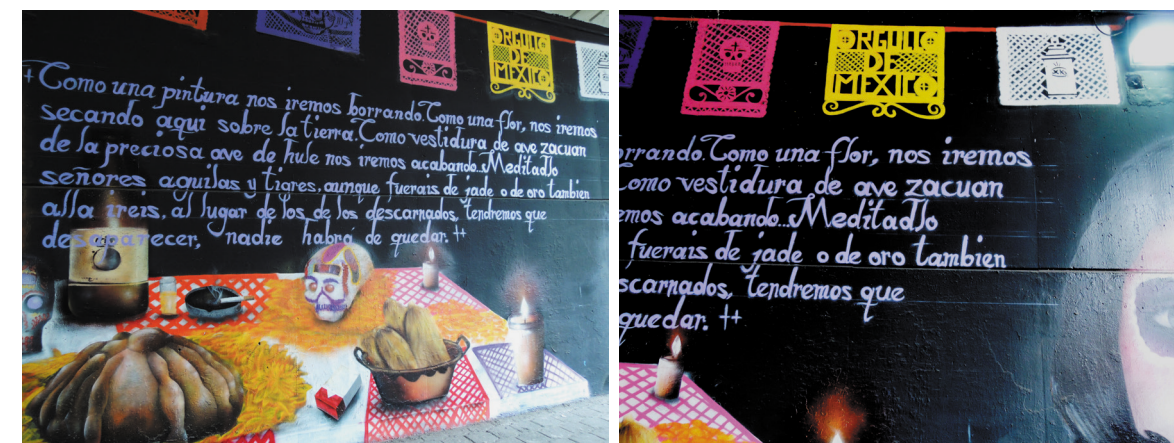 ORGULLO
DE
MEXICO
‡Como una pintura nos iremos borrando. Como una flor, nos iremos
secando aqui sobre la tierra. Como vestidura de ave zacuan
de la preciosa ave de hule nos iremos acabando...Meditadlo
señores aguilas y tigres, aunque fuerais de jade o de oro tambien
alla ireis, al lugar de los de los descarnados, tendremos que
desaparecer, nadie habrá de quedar. ‡
ORGULLO
DE
MEXICO
orrando. Como una flor, nos iremos
Como vestidura de ave zacuan
emos acabando...Meditadlo
fuerais de jade o de oro tambien
scarnados, tendremos que
quedar. ‡